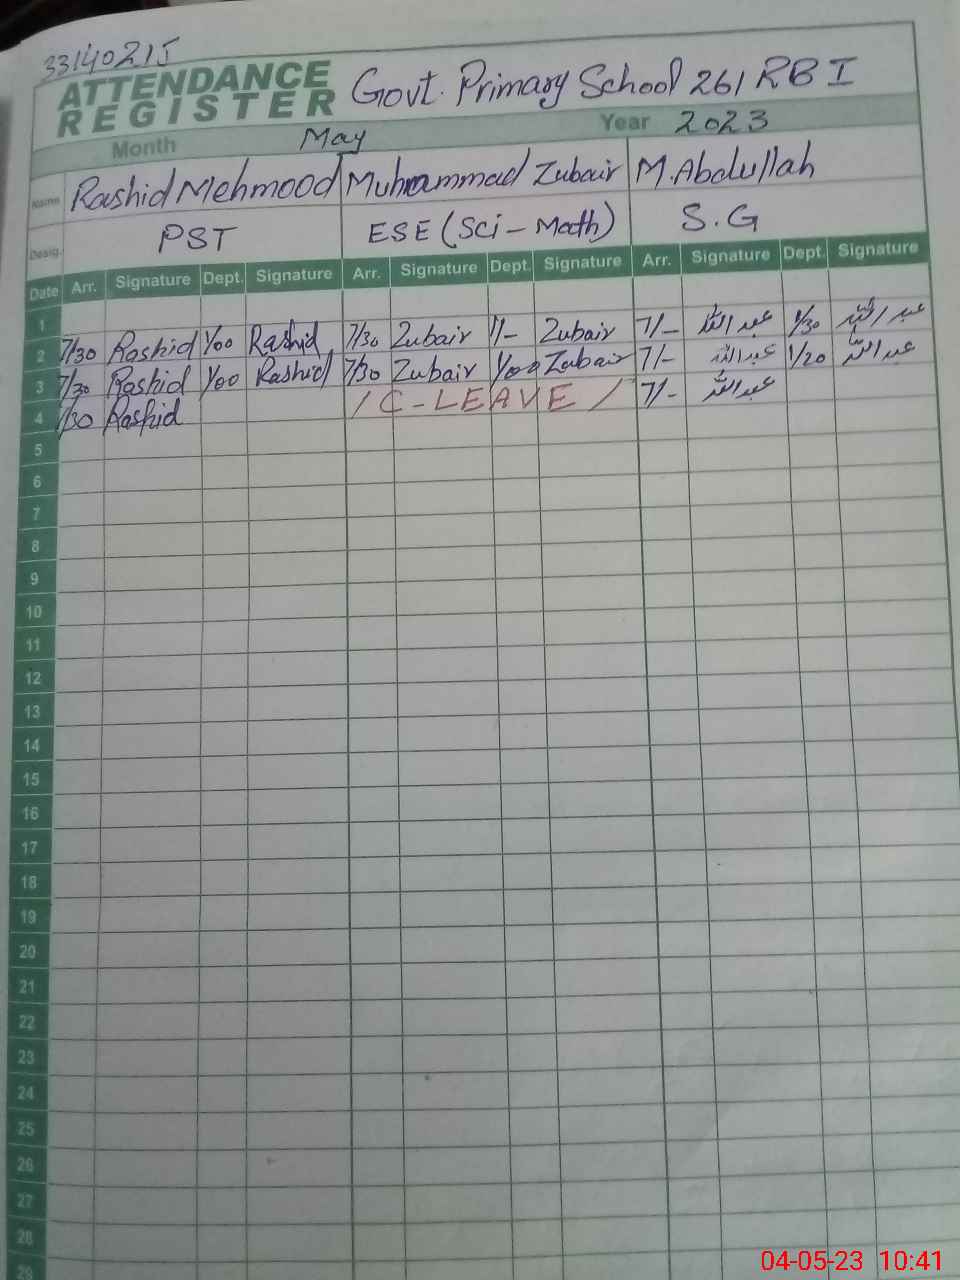 33140215
ATTENDANCE REGISTER Govt. Primary School 261 RB I
Month May Year 2023
Name Rashid Mehmood Muhammad Zubair M. Abdullah
Desig. PST ESE (Sci - Math) S.G
Date Arr. Signature Dept. Signature Arr. Signature Dept. Signature Arr. Signature Dept. Signature
1
2 7/30 Rashid 1/00 Rashid 7/30 Zubair 1/- Zubair 7/- عبداللہ 1/30 عبداللہ
3 7/30 Rashid 1/00 Rashid 7/30 Zubair 1/00 Zubair 7/- عبداللہ 1/20 عبداللہ
4 7/30 Rashid / C-LEAVE / 7/- عبداللہ
5
6
7
8
9
10
11
12
13
14
15
16
17
18
19
20
21
22
23
24
25
26
27
28
29
04-05-23 10:41